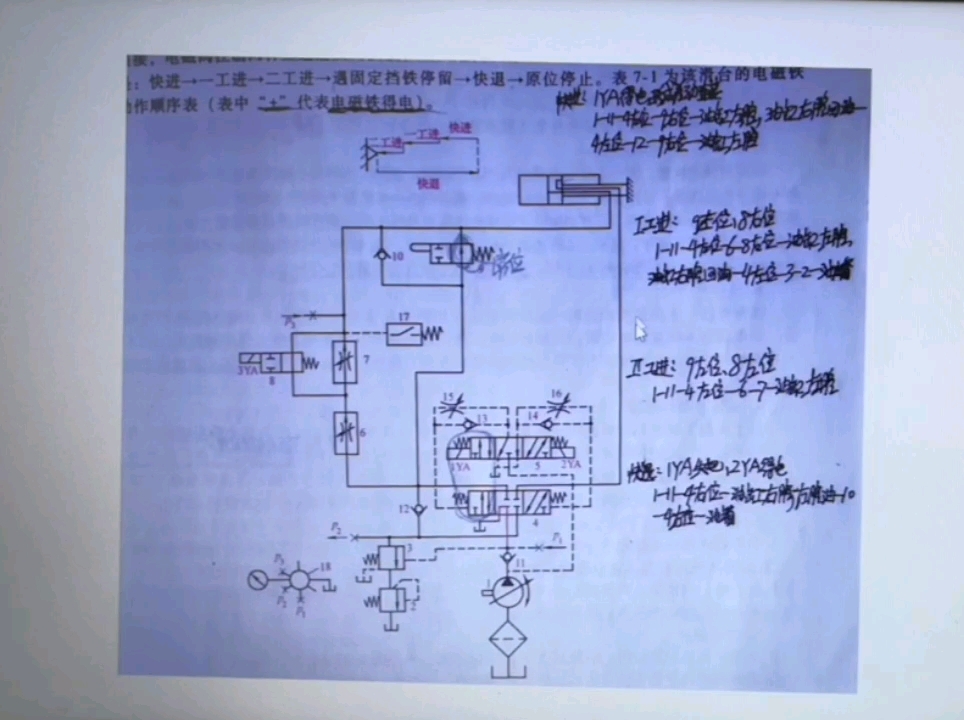 ：快进→一工进→二工进→遇固定挡铁停留→快退→原位停止。表 7-1 为该滑台的电磁铁
动作顺序表（表中“+”代表电磁铁得电）。
快进：1YA得电
1-11-4左位-9右位-油缸左腔，油缸右腔回油-
4左位-12-9右位-油缸左腔
二工进
一工进
快进
快退
10
I工进：9左位、8右位
1-11-4左位-6-8右位-油缸左腔，
油缸右腔回油-4左位-3-2-油箱
P3
17
3YA
8
7
II工进：9左位、8左位
1-11-4左位-6-7-油缸左腔
15
16
13
14
6
1YA
5
2YA
快退：1YA失电，2YA得电
1-11-4右位-油缸右腔，左腔油-10
-4右位-油箱
12
4
P2
3
P1
11
P3
18
P2
P1
2
1